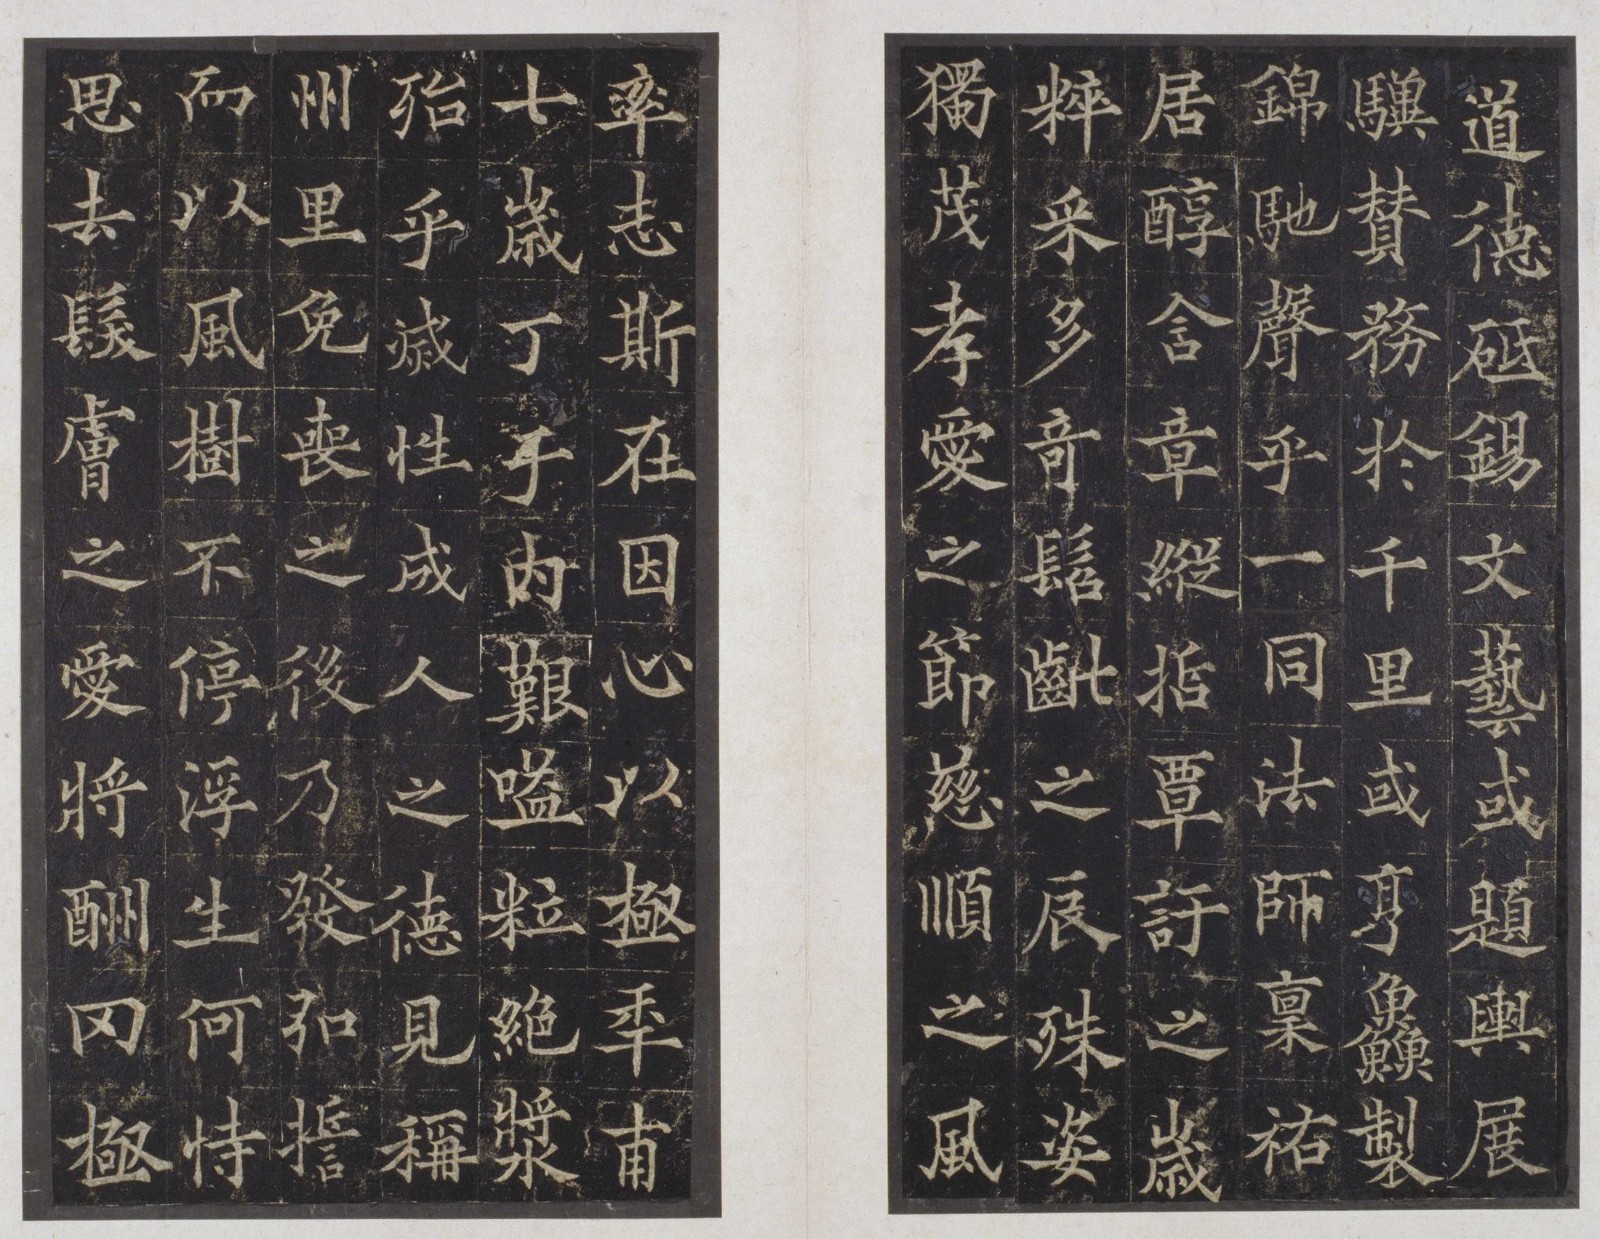 道德砥錫文藝或題輿展
驥贊務於千里或亨鱻製
錦馳聲乎一同法師稟祐
居醇含章縱括覃訏之歲
粹采多奇髫齓之辰殊姿
獨茂孝愛之節慈順之風
率志斯在因心以極年甫
七歲丁于内艱嗌粒絕漿
殆乎滅性成人之德見稱
州里免喪之後乃發弘誓
而以風樹不停浮生何恃
思去髮膚之愛將酬罔極